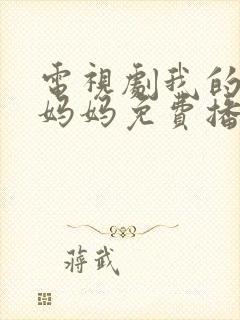 電視劇我的
妈妈免費播
蔣武